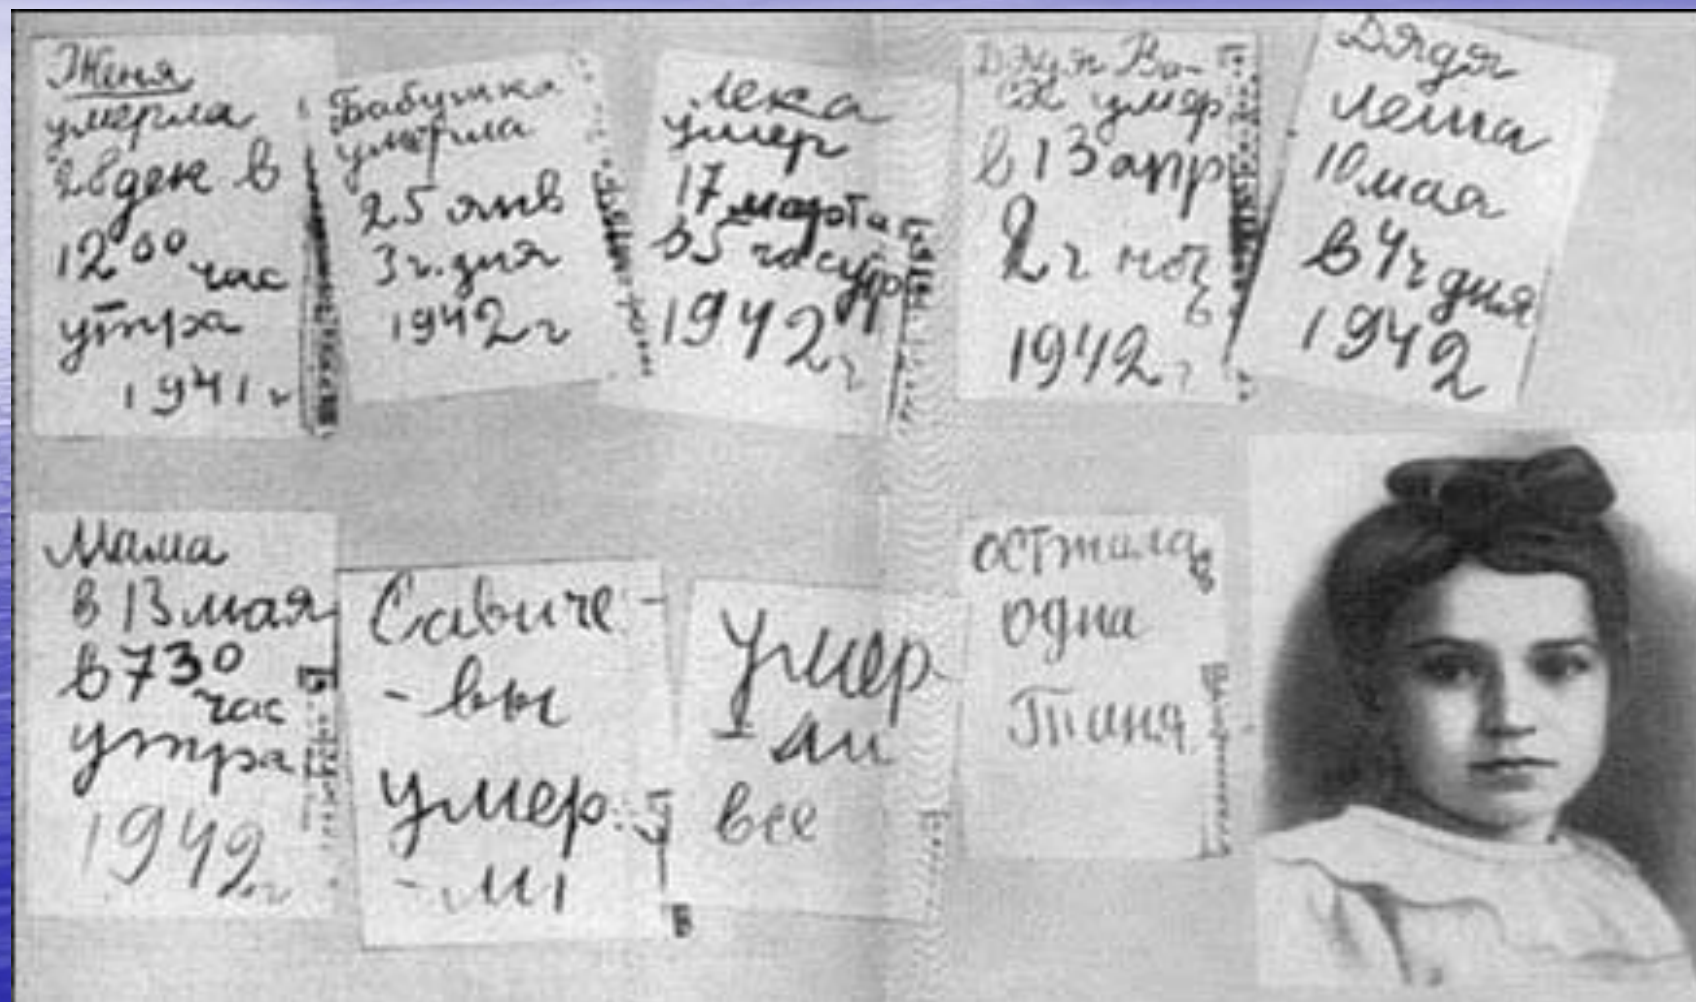 Женя
умерла
28 дек в
12 00 час
утра
1941 г
Бабушка
умерла
25 янв
3 ч. дня
1942 г
Лека
умер
17 марта
в 5 час утр
1942 г
Дядя Ва-
ся умер
в 13 апр
2 ч ноч
ь
1942 г
Дядя
Леша
10 мая
в 4 ч дня
1942
Мама
в 13 мая
в 7 30
час
утра
1942 г
Савиче-
-вы
умер
-ли
Умер
-ли
все
осталас
ь
одна
Таня